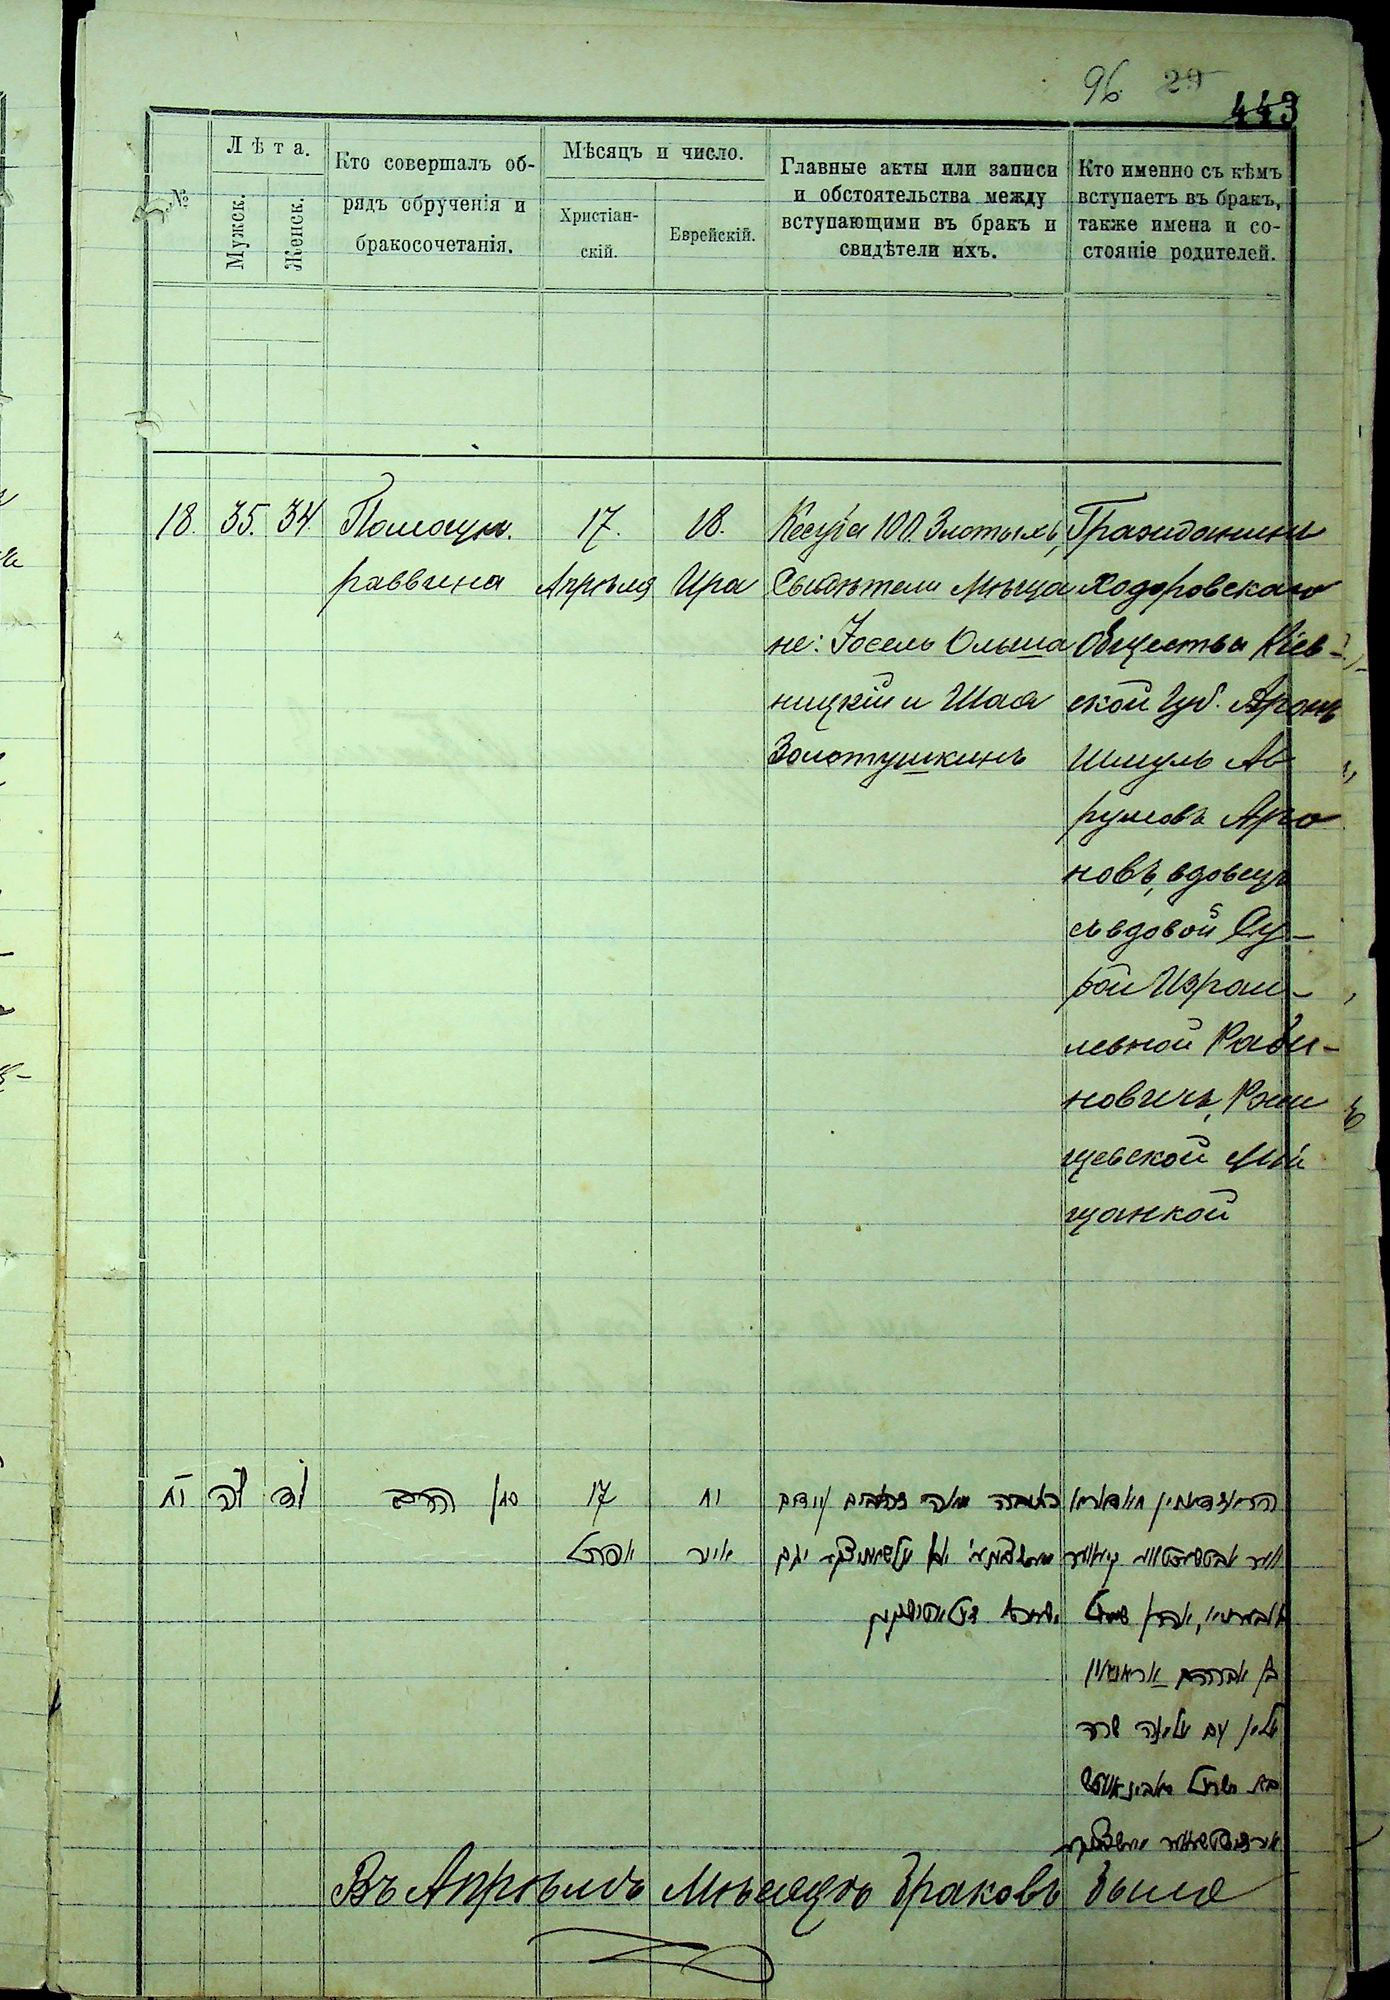 96 29 443
№
Лѣта.
Мужск.
Женск.
Кто совершалъ об-
рядъ обрученія и
бракосочетанія.
Мѣсяцъ и число.
Христіан-
скій.
Еврейскій.
Главные акты или записи
и обстоятельства между
вступающими въ бракъ и
свидѣтели ихъ.
Кто именно съ кѣмъ
вступаетъ въ бракъ,
также имена и со-
стояніе родителей.
18. 35. 34.
Помощн.
раввина
17.
Апрѣля
18.
Ира
Кесуба 100 Злотыхъ,
Свидѣтели Мѣща
не: Іосель Ольша
ницкій и Шая
Золотушкинъ
Гражданинъ
Ходоровскаго
Общества Кіев-
ской губ. Аронъ
Шмуль Ав
румовъ Аро
новъ, вдовецъ
съ вдовой Су-
рой Израи-
левной Раби-
новичъ, Ржи
щевской Мѣ
щанкой
יח לה לד
סגן הרב
17
אפריל
יח
אייר
כתובה מאה זהובים
בן אברהם
אלמן עם אלמנה שרה
בת ישראל ראבינאוויטש
Въ Апрѣлѣ Мѣсяцѣ браковъ было